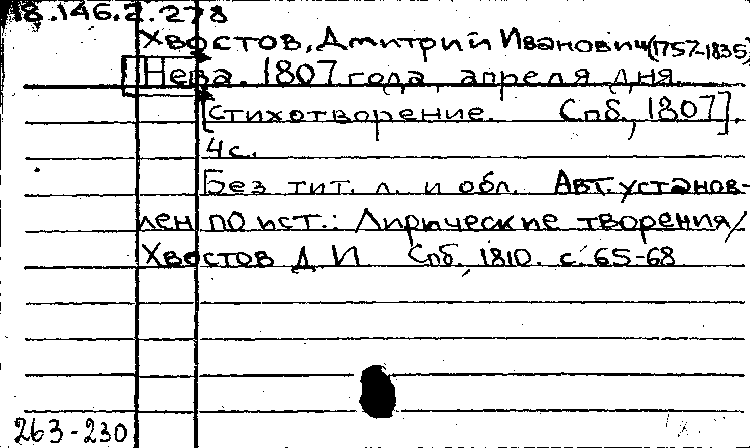 18.146.2.278
Хвостов, Дмитрий Иванович (1757-1835)
Нева. 1807 года, апреля дня.
[Стихотворение. Спб., 1807].
4с.
Без тит. л. и обл. Авт. установ-
лен по ист.: Лирические творения/
Хвостов Д И Спб., 1810. с. 65-68
263-230